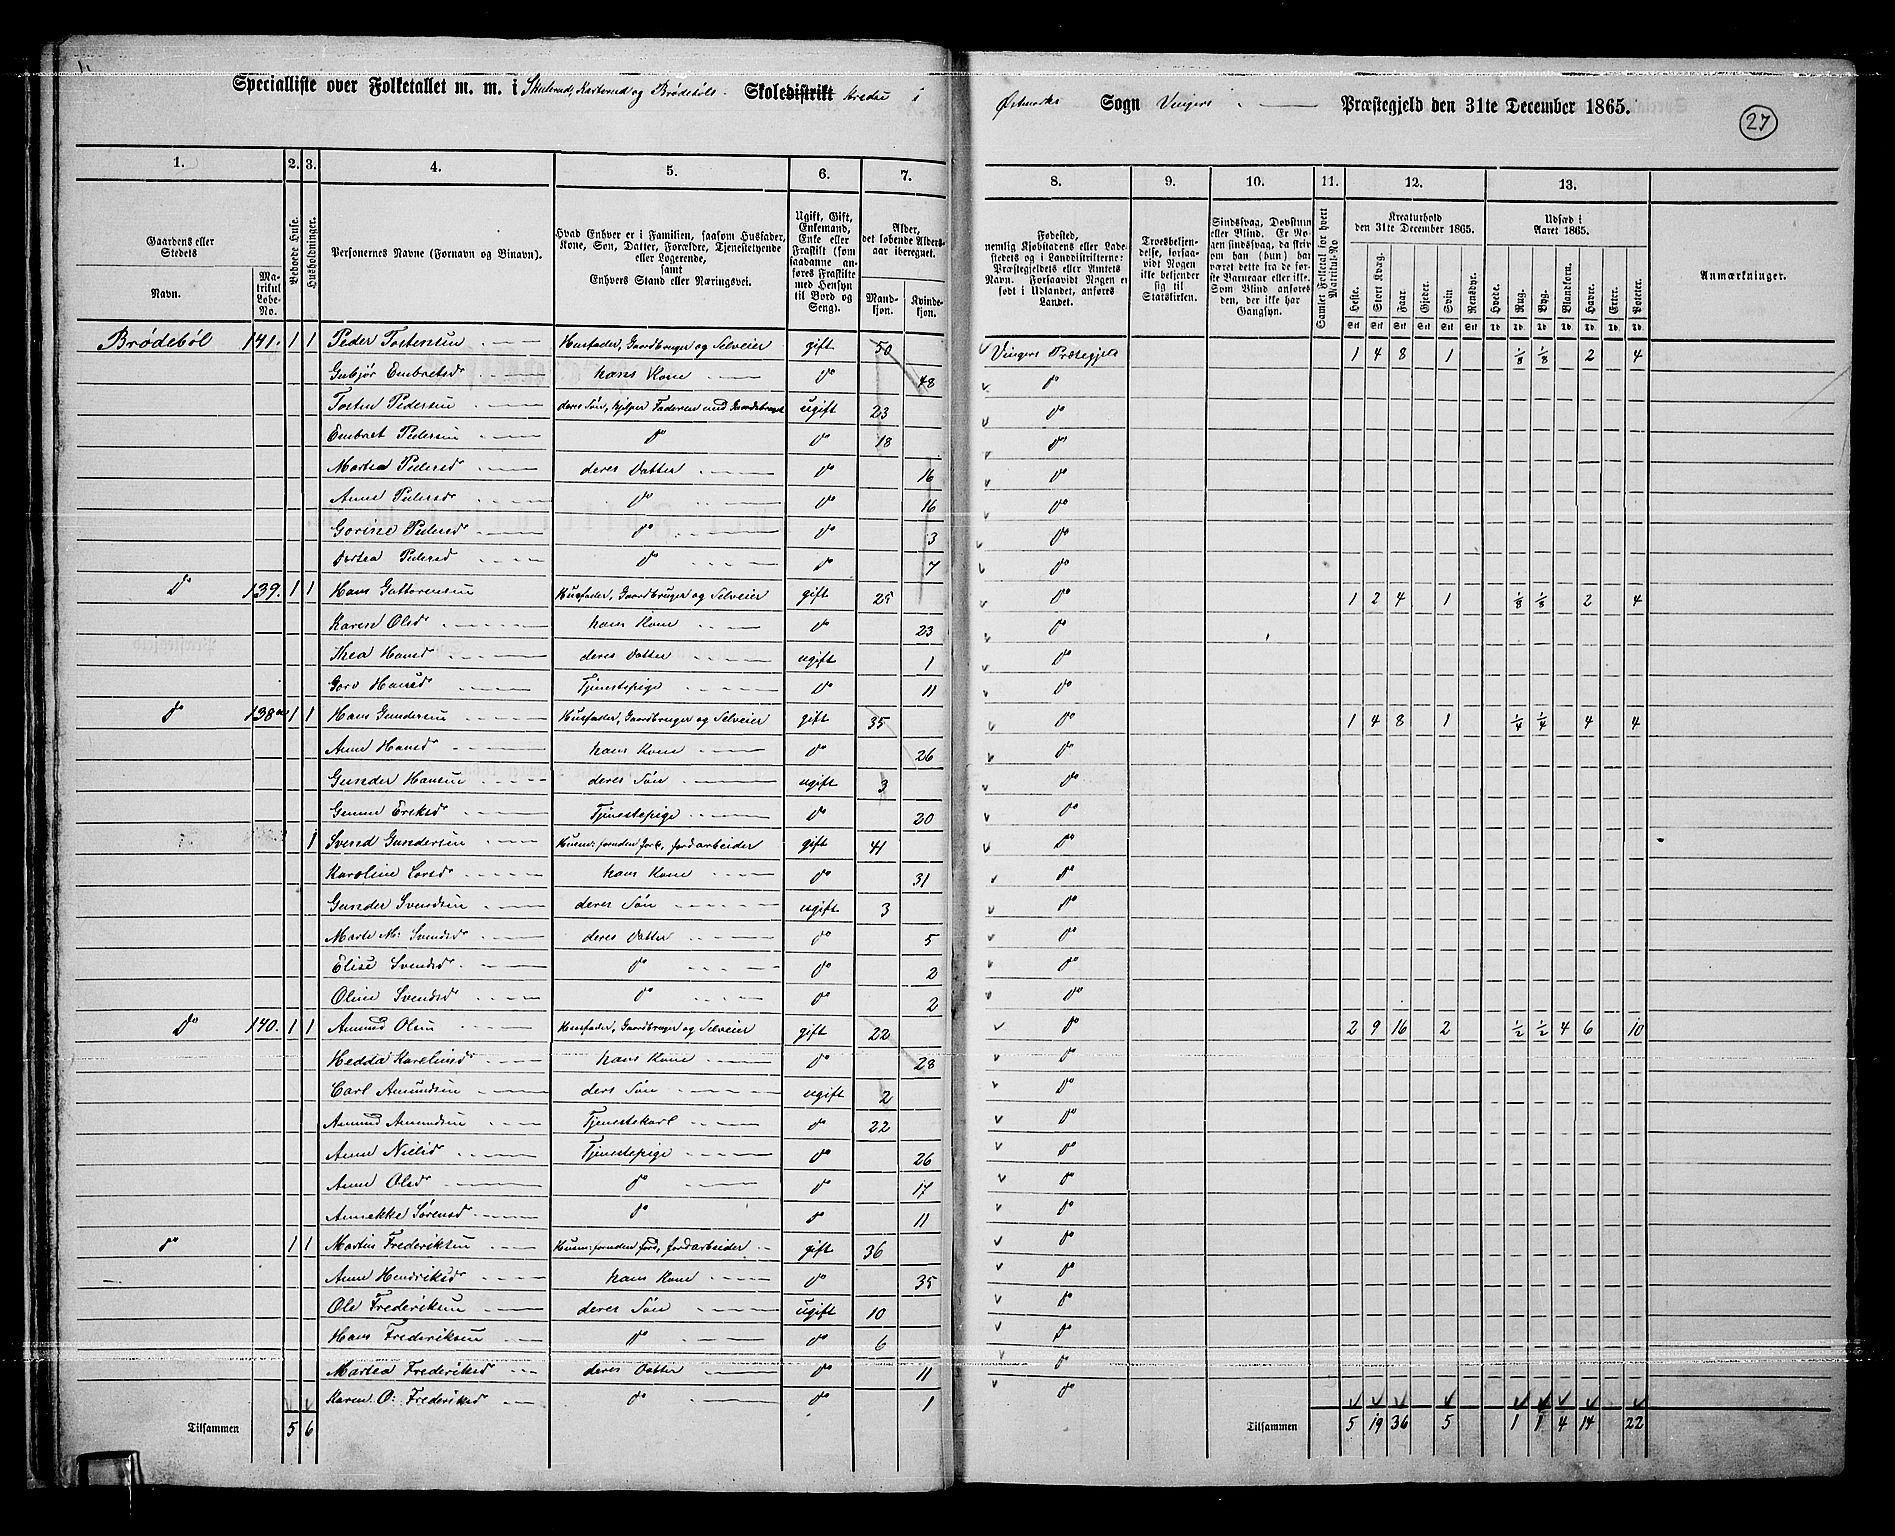 Specialliste over Folketallet m. m. i Skulerud, Kartorud og Brødebøls Skoledistrikt kredse i Østmarks Sogn Vingers Præstegjeld den 31te December 1865.
27
1. 2. 3. 4. 5. 6. 7. 8. 9. 10. 11. 12. 13.
Gaardens eller Stedets
Navn. Matrikul Løbe-No.
Beboede Huse.
Husholdninger.
Personernes Navne (Fornavn og Binavn).
Hvad Enhver er i Familien, saasom Husfader, Kone, Søn, Datter, Forældre, Tjenestetyende eller Logerende, samt Enhvers Stand eller Næringsvei.
Ugift, Gift, Enkemand, Enke eller Fraskilt (som saadanne anføres Fraskilte med Hensyn til Bord og Seng).
Alder, det løbende Alders-aar iberegnet.
Mandkjøn. Kvindekjøn.
Fødested, nemlig Kjøbstadens eller Ladestedets og i Landdistrikterne: Præstegjeldets eller Amtets Navn. Forsaavidt Nogen er født i Udlandet, anføres Landet.
Troesbekjendelse, forsaavidt Nogen ikke bekjender sig til Statskirken.
Sindssvag, Døvstum eller Blind. Er Nogen sindssvag, da skrives om han (hun) har været dette fra de første Barneaar eller ikke. Som Blind anføres den, der ikke har Gangsyn.
Samlet Folketal for hvert Matrikul-No
Kreaturhold den 31te December 1865.
Heste. Stort Kvæg. Faar. Gjeder. Svin. Rensdyr.
Udsæd i Aaret 1865.
Hvede. Rug. Byg. Blandkorn. Havre. Erter. Poteter.
Anmærkninger.
Brødebøl 141. 1 1 Peder Tostensen Husfader, Gaardbruger og Selveier gift 50 Vingers Præstegjeld 1 4 8 1 1/8 1/8 2 4
Gubjør Embretsd. hans Kone do 48 do
Tosten Pedersen deres Søn, hjelper Faderen med Gaardsbruget ugift 23 do
Embret Pedersen do do 18 do
Martea Pedersd. deres Datter do 16 do
Anne Pedersd. do do 16 do
Gorine Pedersd. do do 3 do
Dortea Pedersd. do do 7 do
do 139. 1 1 Hans Guttormsen Husfader, Gaardbruger og Selveier gift 25 do 1 2 4 1 1/8 1/8 2 4
Karen Olsd. hans Kone do 23 do
Thea Hansd. deres Datter ugift 1 do
Goro Hansd. Tjenestepige do 11 do
do 138 1 1 Hans Gundersen Husfader, Gaardbruger og Selveier gift 35 do 1 4 8 1 1/4 1/4 4 4
Anne Hansd. hans Kone do 26 do
Gunder Hansen deres Søn ugift 3 do
Gunne Eriksd. Tjenestepige do 20 do
1 Svend Gundersen Husm. foruden Jord, Jordarbeider gift 41 do
Karoline Larsd. hans Kone do 31 do
Gunder Svendsen deres Søn ugift 3 do
Marte M: Svendsd. deres Datter do 5 do
Elise Svendsd. do do 2 do
Oline Svendsd. do do 2 do
do 140. 1 1 Amund Olsen Husfader, Gaardbruger og Selveier gift 22 do 2 9 16 2 1/2 1/2 4 6 10
Hedda Karelsd. hans Kone do 28 do
Carl Amundsen ders Søn ugift 2 do
Amund Amundsen Tjenestekarl do 22 do
Anne Nielsd. Tjenestepige do 26 do
Anne Olsd. do do 17 do
Annekke Sørensd. do do 11 do
do 1 1 Martin Frederiksen Husm. foruden Jord, Jordarbeider gift 36 do
Anne Hendriksd. hans Kone do 35 do
Ole Frederiksen deres Søn ugift 10 do
Hans Frederiksen do do 6 do
Martea Frederiksd. deres Datter do 11 do
Karen O: Frederiksd. do do 1 do
Tilsammen 5 6 Tilsammen 5 19 36 5 1 1 4 14 22